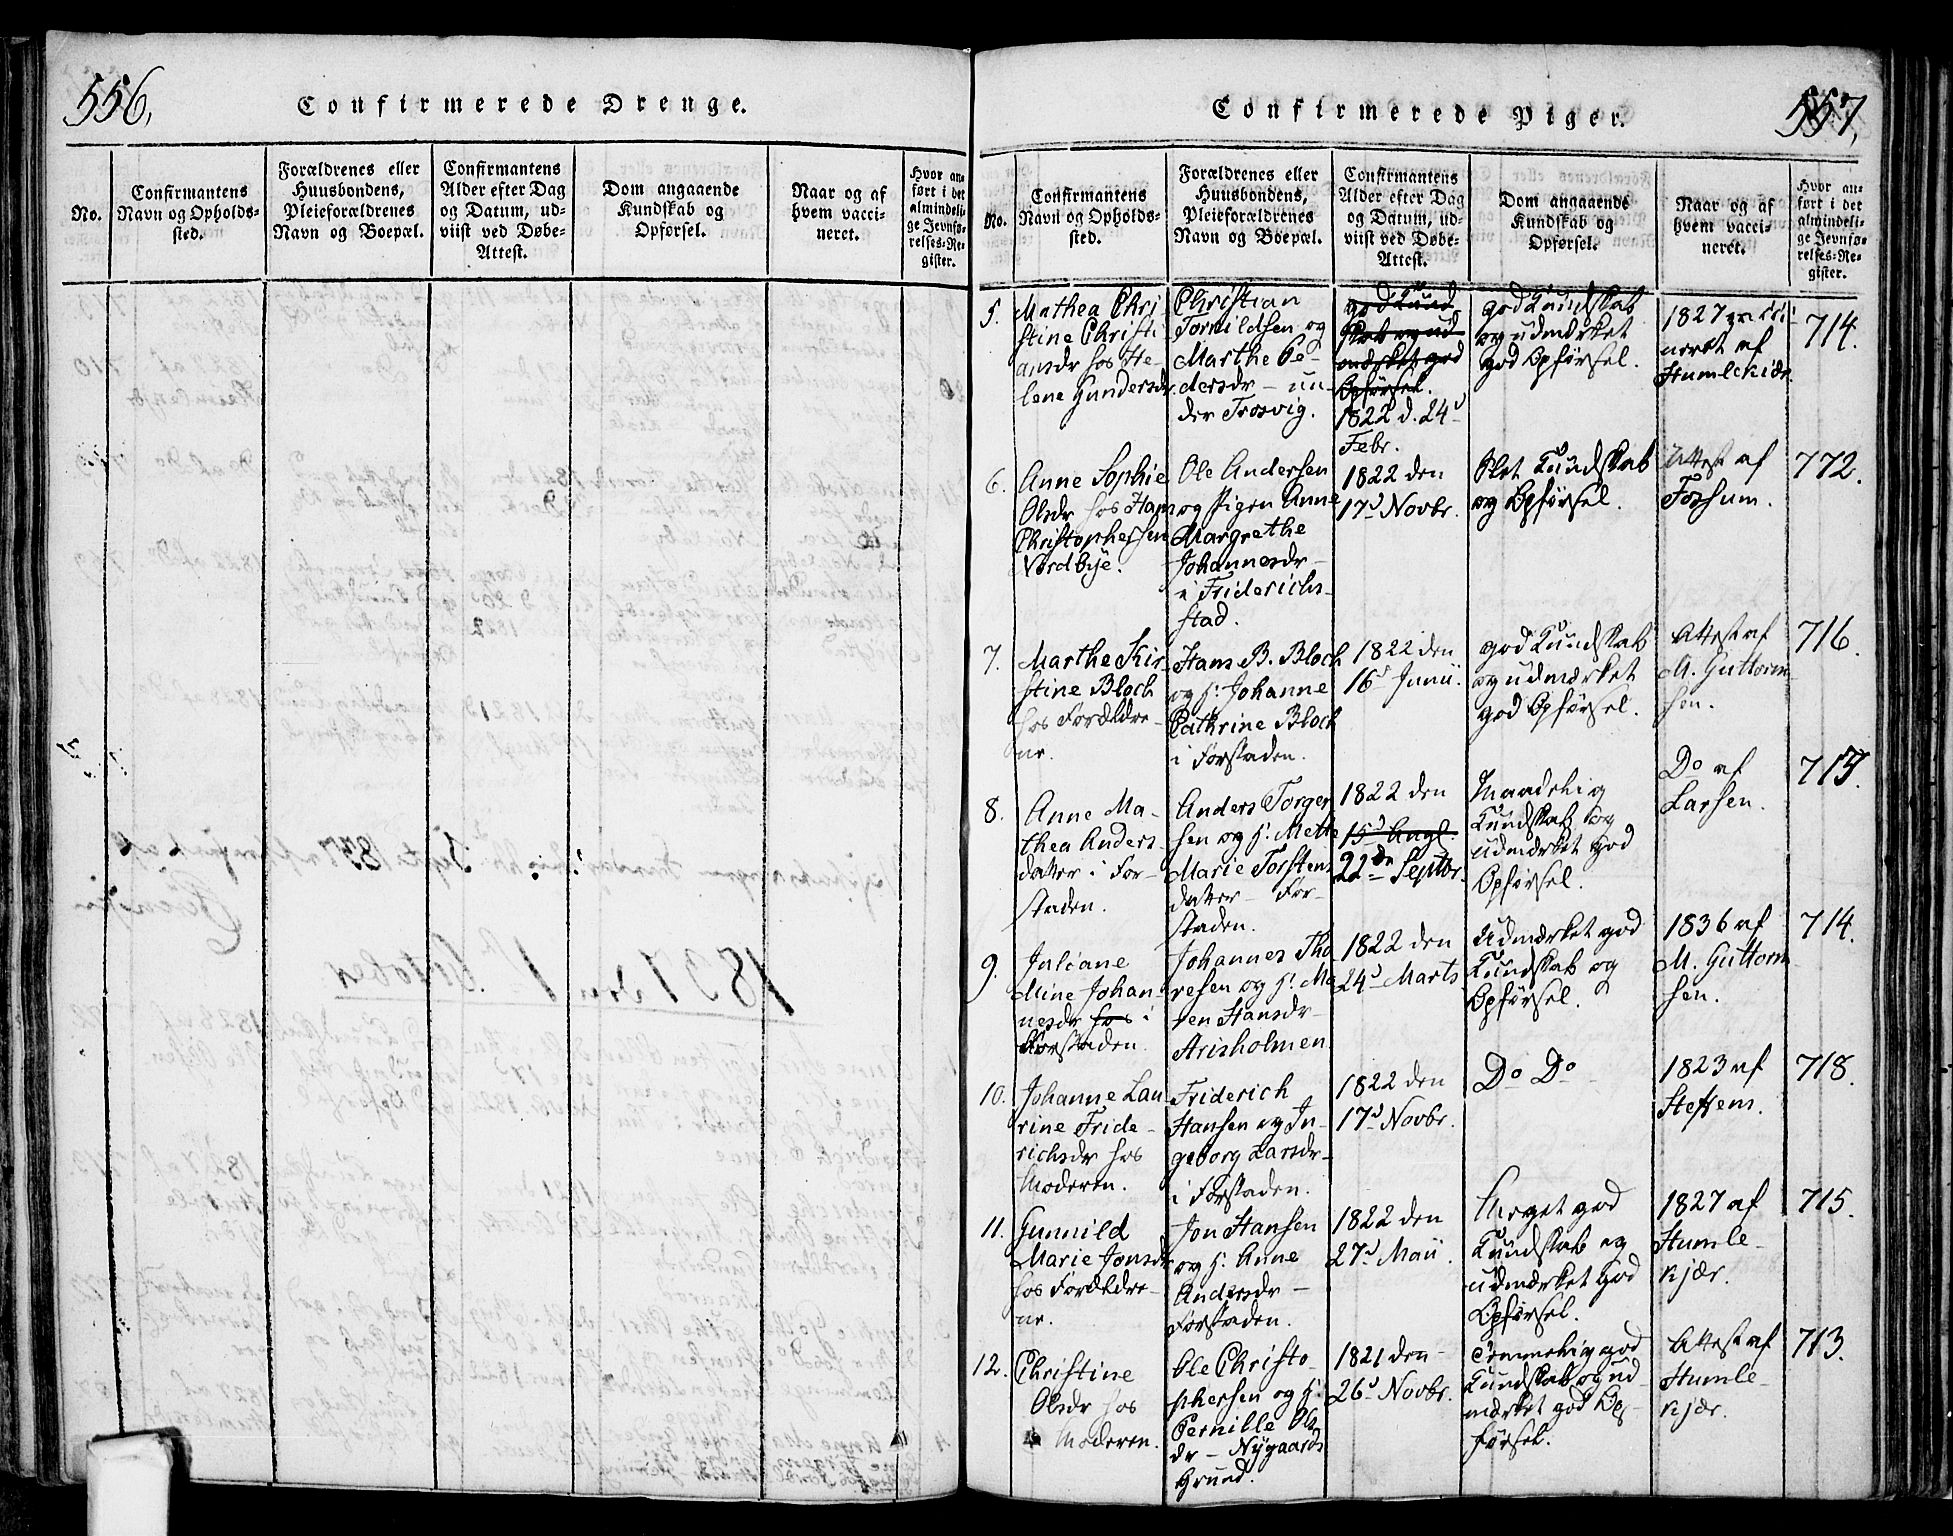 556,
Confirmerede Drenge.
No.
Confirmantens
Navn og Opholds-
sted.
Forældrenes eller
Huusbondens,
Pleieforældrenes
Navn og Boepæl.
Confirmantens
Alder efter Dag
og Datum, ud-
viist ved Døbe-
Attest.
Dom angaaende
Kundskab og
Opførsel.
Naar og af
hvem vacci-
neret.
Hvor an-
ført i det
almindeli-
ge Jevnfø-
relses-Re-
gister.
557,
Confirmerede Piger.
No.
Confirmantens
Navn og Opholds-
sted.
Forældrenes eller
Huusbondens,
Pleieforældrenes
Navn og Boepæl.
Confirmantens
Alder efter Dag
og Datum, ud-
viist ved Døbe-
Attest.
Dom angaaende
Kundskab og
Opførsel.
Naar og af
hvem vacci-
neret.
Hvor an-
ført i det
almindeli-
ge Jevnfø-
relses-Re-
gister.
5.
Mathea Chri-
stine Christi-
ansdr hos He-
lene Gundersdr.
Christian
Tornildsen og
Marthe Pe-
dersdr - un-
der Trosvig.
god Kund
skab og ud
mærket god
Opførsel.
1822 d. 24d
Febr.
god Kundskab
og udmærket
god Opførsel.
1827 vacci-
neret af
Humlekiær.
714.
6.
Anne Sophie
Olsdr hos Hans
Christophersen
Nordbye.
Ole Andersen
og Pigen Anne
Margrethe
Johannesdr -
i Friderichs-
stad.
1822 den
17d Novbr.
Slet Kundskab
og Opførsel.
Attest af
Fossum.
772.
7.
Marthe Kir-
stine Bloch
hos Forældre-
ne.
Hans B. Bloch
og H: Johanne
Cathrine Bloch
i Forstaden.
1822 den
16d Junii.
god Kundskab
og udmærket
god Opførsel.
Attest af
M. Guttorm-
sen.
716.
8.
Anne Ma-
thea Anders
datter i For-
staden.
Anders Torger
sen og H: Mette
Marie Torstens
datter - For-
staden.
1822 den
15d Augl.
22de Septbr.
Maadelig
Kundskab og
udmærket god
Opførsel.
Do af
Larsen.
713.
9.
Juliane
Mine Johan-
nesdr hos i
Forstaden.
Johannes Tho
resen og H: Ma
ren Hansdr -
Arisholmen
1822 den
24d Marts
Udmærket god
Kundskab og
Opførsel.
1836 af
M. Guttorm-
sen.
714.
10.
Johanne Lau
rine Fride-
richsdr hos
Moderen.
Friderich
Hansen og In-
geborg Larsdr -
i Forstaden.
1822 den
17d Novbr.
Do Do
1823 af
Steffens.
718.
11.
Gunnild
Marie Jonsdr
hos Forældre-
ne.
Jon Hansen
og H: Anne
Andersdr -
Forstaden.
1822 den
27d Maii.
Meget god
Kundskab og
udmærket god
Opførsel.
1827 af
Humle-
kjær.
715.
12.
Christine
Olsdr hos
Moderen.
Ole Christo-
phersen og H:
Pernille Ols
dr - Nygaards
Grund.
1821 den
26d Novbr.
Temmelig god
Kundskab og ud-
mærket god Op-
førsel.
Attest af
Humle-
kjær.
713.